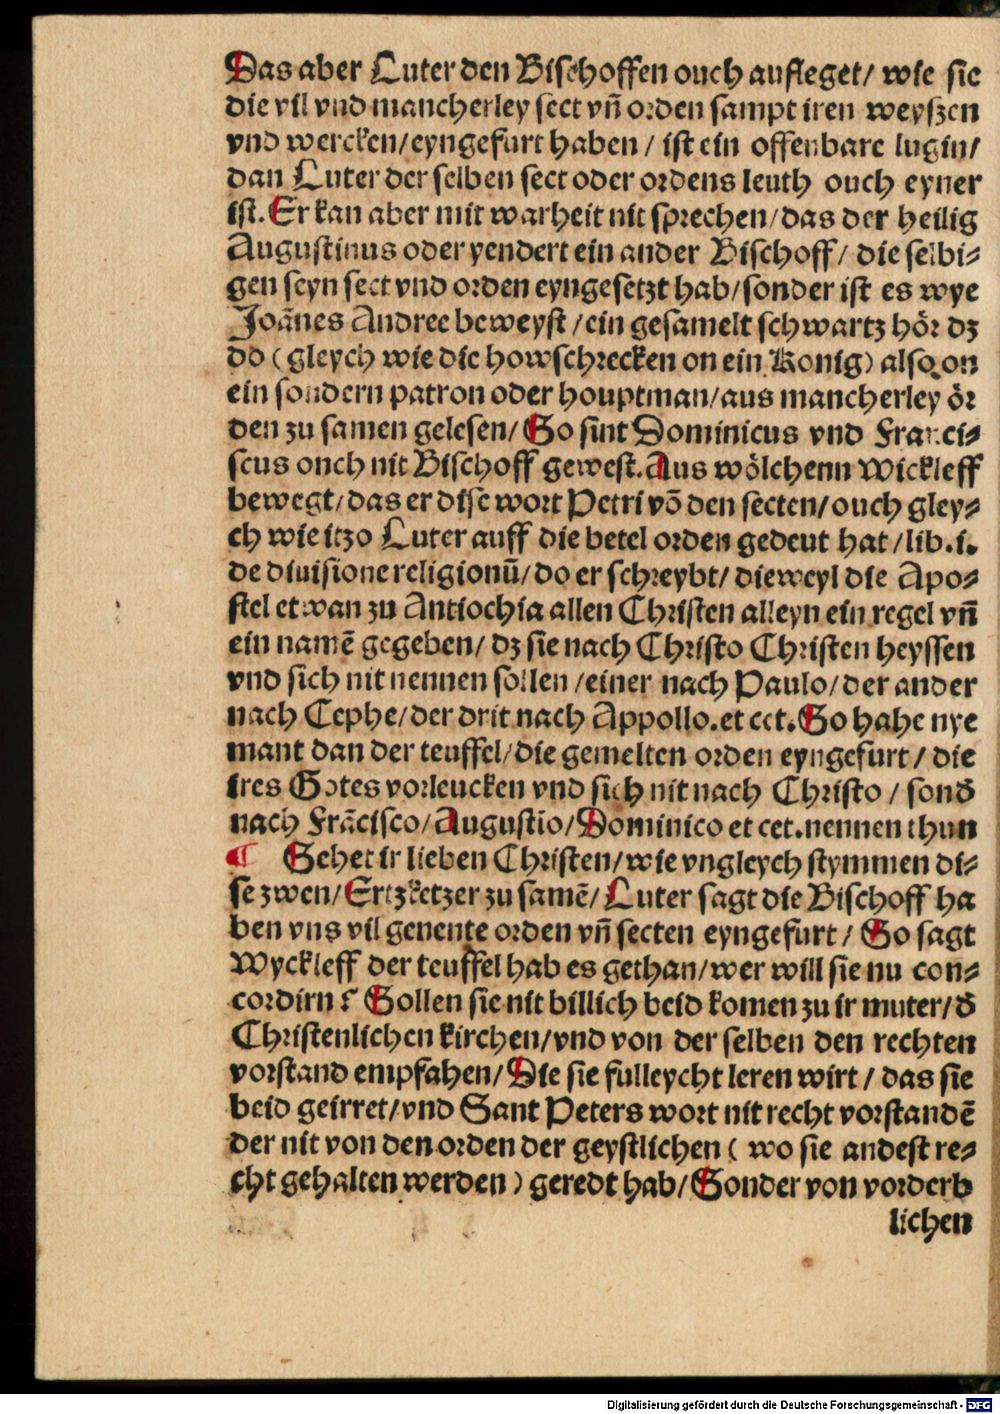 Das aber Luter den Bischoffen ouch aufleget/ wie sie
die vil vnd mancherley sect vñ orden sampt iren weyszen
vnd wercken/eyngefurt haben / ist ein offenbare lugin/
dan Luter der selben sect oder ordens leuth ouch eyner
ist. Er kan aber mit warheit nit sprechen/das der heilig
Augustinus oder yendert ein ander Bischoff/ die selbi⸗
gen seyn sect vnd orden eyngesetzt hab/sonder ist es wye
Joãnes Andree beweyst /ein gesamelt schwartz hör dz
do (gleych wie die howschrecken on ein Konig) also on
ein sondern patron oder houptman/aus mancherley ör
den zu samen gelesen/ So sint Dominicus vnd Franci⸗
scus onch nit Bischoff gewest. Aus wölchenn Wickleff
bewegt/das er dise wort Petri võ den secten/ouch gley⸗
ch wie itzo Luter auff die betel orden gedeut hat/lib.i.
de diuisione religionũ/do er schreybt/ dieweyl die Apo⸗
stel etwan zu Antiochia allen Christen alleyn ein regel vñ
ein namẽ gegeben/ dz sie nach Christo Christen heyssen
vnd sich nit nennen sollen /einer nach Paulo/der ander
nach Cephe/der drit nach Appollo.et cet. So hahe nye
mant dan der teuffel/die gemelten orden eyngefurt/ die
ires Gotes vorleucken vnd sich nit nach Christo / sonð
nach Frãcisco/Augustĩo/Dominico et cet.nennen thun
¶ Sehet ir lieben Christen/wie vngleych stymmen di⸗
se zwen/Ertzketzer zu samẽ/Luter sagt die Bischoff ha
ben vns vil genente orden vñ secten eyngefurt/ So sagt
Wyckleff der teuffel hab es gethan/wer will sie nu con⸗
cordirn? Sollen sie nit billich beid komen zu ir muter/ð
Christenlichen kirchen/vnd von der selben den rechten
vorstand empfahen/Die sie fulleycht leren wirt / das sie
beid geirret/vnd Sant Peters wort nit recht vorstandẽ
der nit von den orden der geystlichen ( wo sie andest re⸗
cht gehalten werden) geredt hab/Sonder von vorderb
lichen
Digitalisierung gefördert durch die Deutsche Forschungsgemeinschaft - DFG